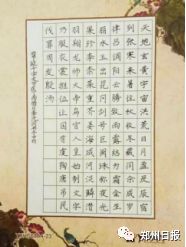 天地玄黄宇宙洪荒日月盈昃辰宿
列张寒来暑往秋收冬藏闰余成岁
律吕调阳云腾致雨露结为霜金生
丽水玉出昆冈剑号巨阙珠称夜光
果珍李柰菜重芥姜海咸河淡鳞潜
羽翔龙师火帝鸟官人皇始制文字
乃服衣裳推位让国有虞陶唐吊民
伐罪周发殷汤
郑州日报